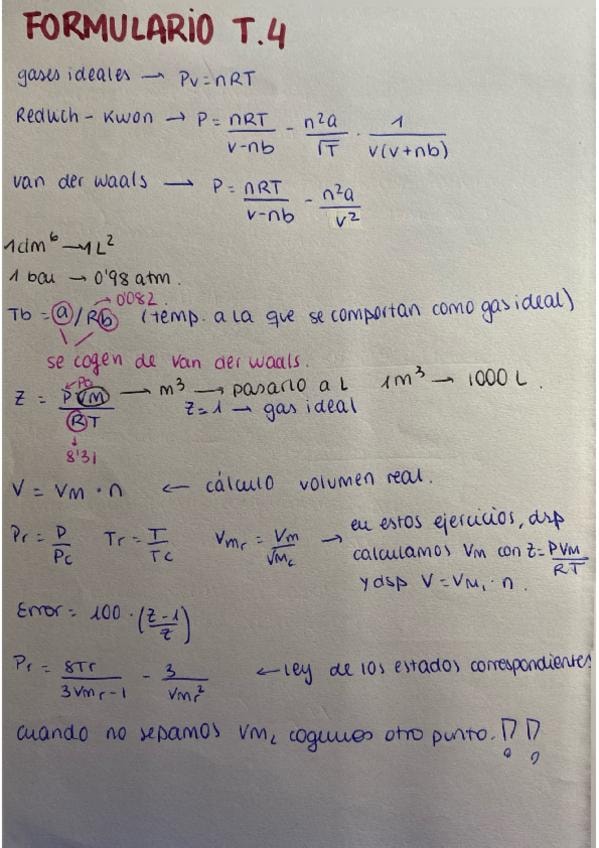 FORMULARIO T.4
gases ideales → Pv = nRT
Reduch - Kwon → P = nRT / v-nb - n²a / √T · 1 / v(v+nb)
van der waals → P = nRT / v-nb - n²a / v²
1dm⁶ → 1L²
1 bar → 0'98 atm.
→ 0'082
Tb = a / Rb (temp. a la que se comportan como gas ideal)
se cogen de van der waals.
Z = P Vm / RT → m³ → pasarlo a L 1m³ → 1000 L.
← Pa
Z=1 → gas ideal
8'31
V = Vm · n ← cálculo volumen real.
Pr = P / Pc Tr = T / Tc Vmr = Vm / Vmc → en estos ejercicios, dsp
calculamos Vm con Z = PVM / RT
y dsp V = VM, · n.
Error = 100 · (Z-1 / Z)
Pr = 8Tr / 3Vmr-1 - 3 / Vmr² ← ley de los estados correspondientes
cuando no sepamos VMc cogemos otro punto. !!